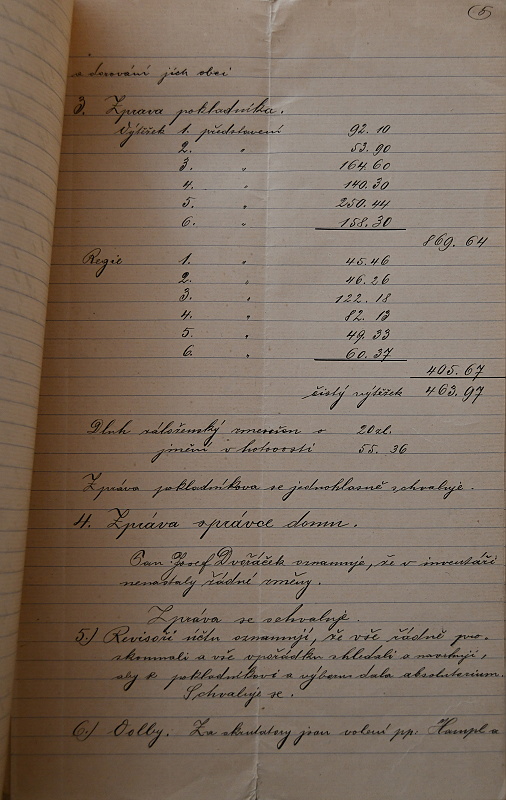 5
a darování jich obci
3. Zprava pokladníka.
Výtěžek 1. představení 92.10
2. " 53.90
3. " 164.60
4. " 140.30
5. " 250.44
6. " 158.30
869.64
Regie 1. " 45.46
2. " 46.26
3. " 122.18
4. " 82.13
5. " 49.33
6. " 60.37
405.67
čistý výtěžek 463.97
Dluh záloženský zmenšen o 20zl.
jmění v hotovosti 55.36
Zpráva pokladníkova se jednohlasně schvaluje.
4. Zpráva správce domu.
Pan Josef Dvořáček oznamuje, že v inventáři
nenastaly řádné změny.
Zpráva se schvaluje.
5.) Revisoři účtů oznamují, že vše řádně pro-
zkoumali a vše v pořádku shledali a navrhují,
aby k pokladníkovi a výboru dalo absolutorium.
Schvaluje se.
6.) Volby. Za skrutatory jsou voleni pp. Hampl a